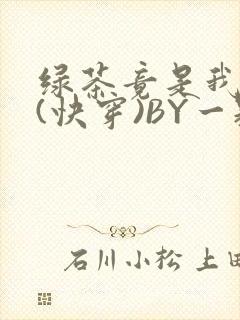 绿茶竟是我
(快穿)BY一
石川小松 上田